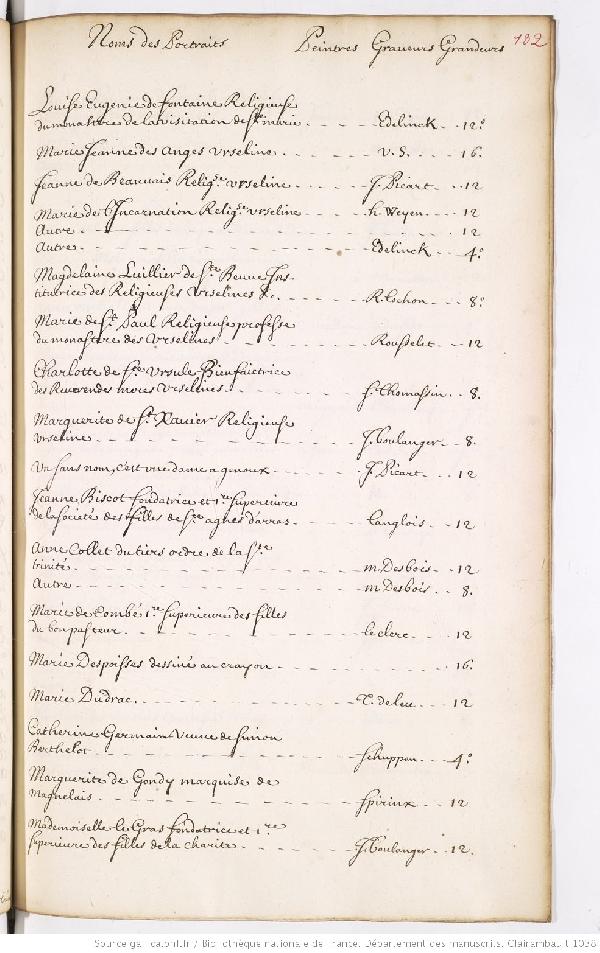 Noms des Portraits Peintres Graueurs Grandeurs 182
Louise Eugenie de fontaine Religieuse
du monastere de la visitation de Ste marie Edelinck 12º
Marie Jeanne des Anges vrseline v. S. 16.
Jeanne de Beauuais Religse vrseline J. Picart 12
Marie de l'Incarnation Religse vrseline h. Weyen 12
Autre 12
Autre Edelinck 4º
Magdelaine Luillier de Ste Beuue Ins-
titutrice des Religieuses Vrselines &c. R. Lochon 8º
Marie de St Paul Religieuse professe
du monastere des Vrselines Rousselet 12
Charlotte de Ste Vrsule Bienfaictrice
des Reuerendes meres Vrselines S. thomassin 8.
Marguerite de St Xauier Religieuse
vrseline J. boulanger 8.
Vn sans nom, c'est vne dame a genoux J. Picart 12
Jeanne Biscot fondatrice et 1re superieure
de la societé des filles de Ste agnes d'arras Langlois 12
Anne Collet du tiers ordre de la Ste
trinité m. Desbois 12
Autre m. Desbois 8.
Marie de Combé 1re superieure des filles
du bon pasteur le clerc 12
Marie Despoisses dessiné au crayon 16.
Marie Dudrac T. deleu 12
Catherine Germain Veuue de simon
Berthelot schuppen 4º
Marguerite de Gondy marquise de
Magnelais spirinx 12
Mademoiselle le Gras fondatrice et 1re
superieure des filles de la charité J. boulanger 12.
Source gallica.bnf.fr / Bibliothèque nationale de France. Département des manuscrits. Clairambault 1038